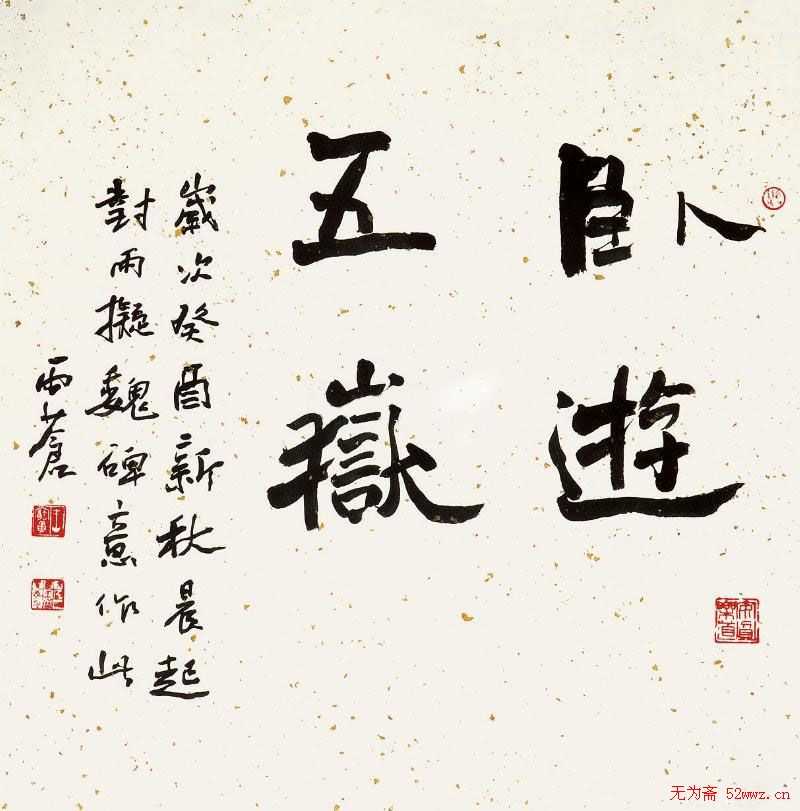 臥遊
五嶽
歲次癸酉新秋晨起
對雨擬魏碑意作此
雨蒼
安貧
樂道
无为斋 52wwz.cn